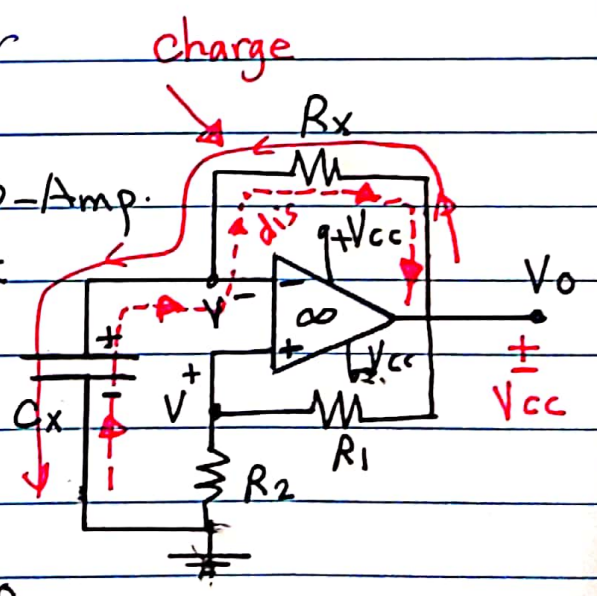 charge
Rx
-Amp.
dis
+Vcc
Vo
V-
−
∞
+
±
Vcc
+
-
Vcc
V+
Cx
R1
R2